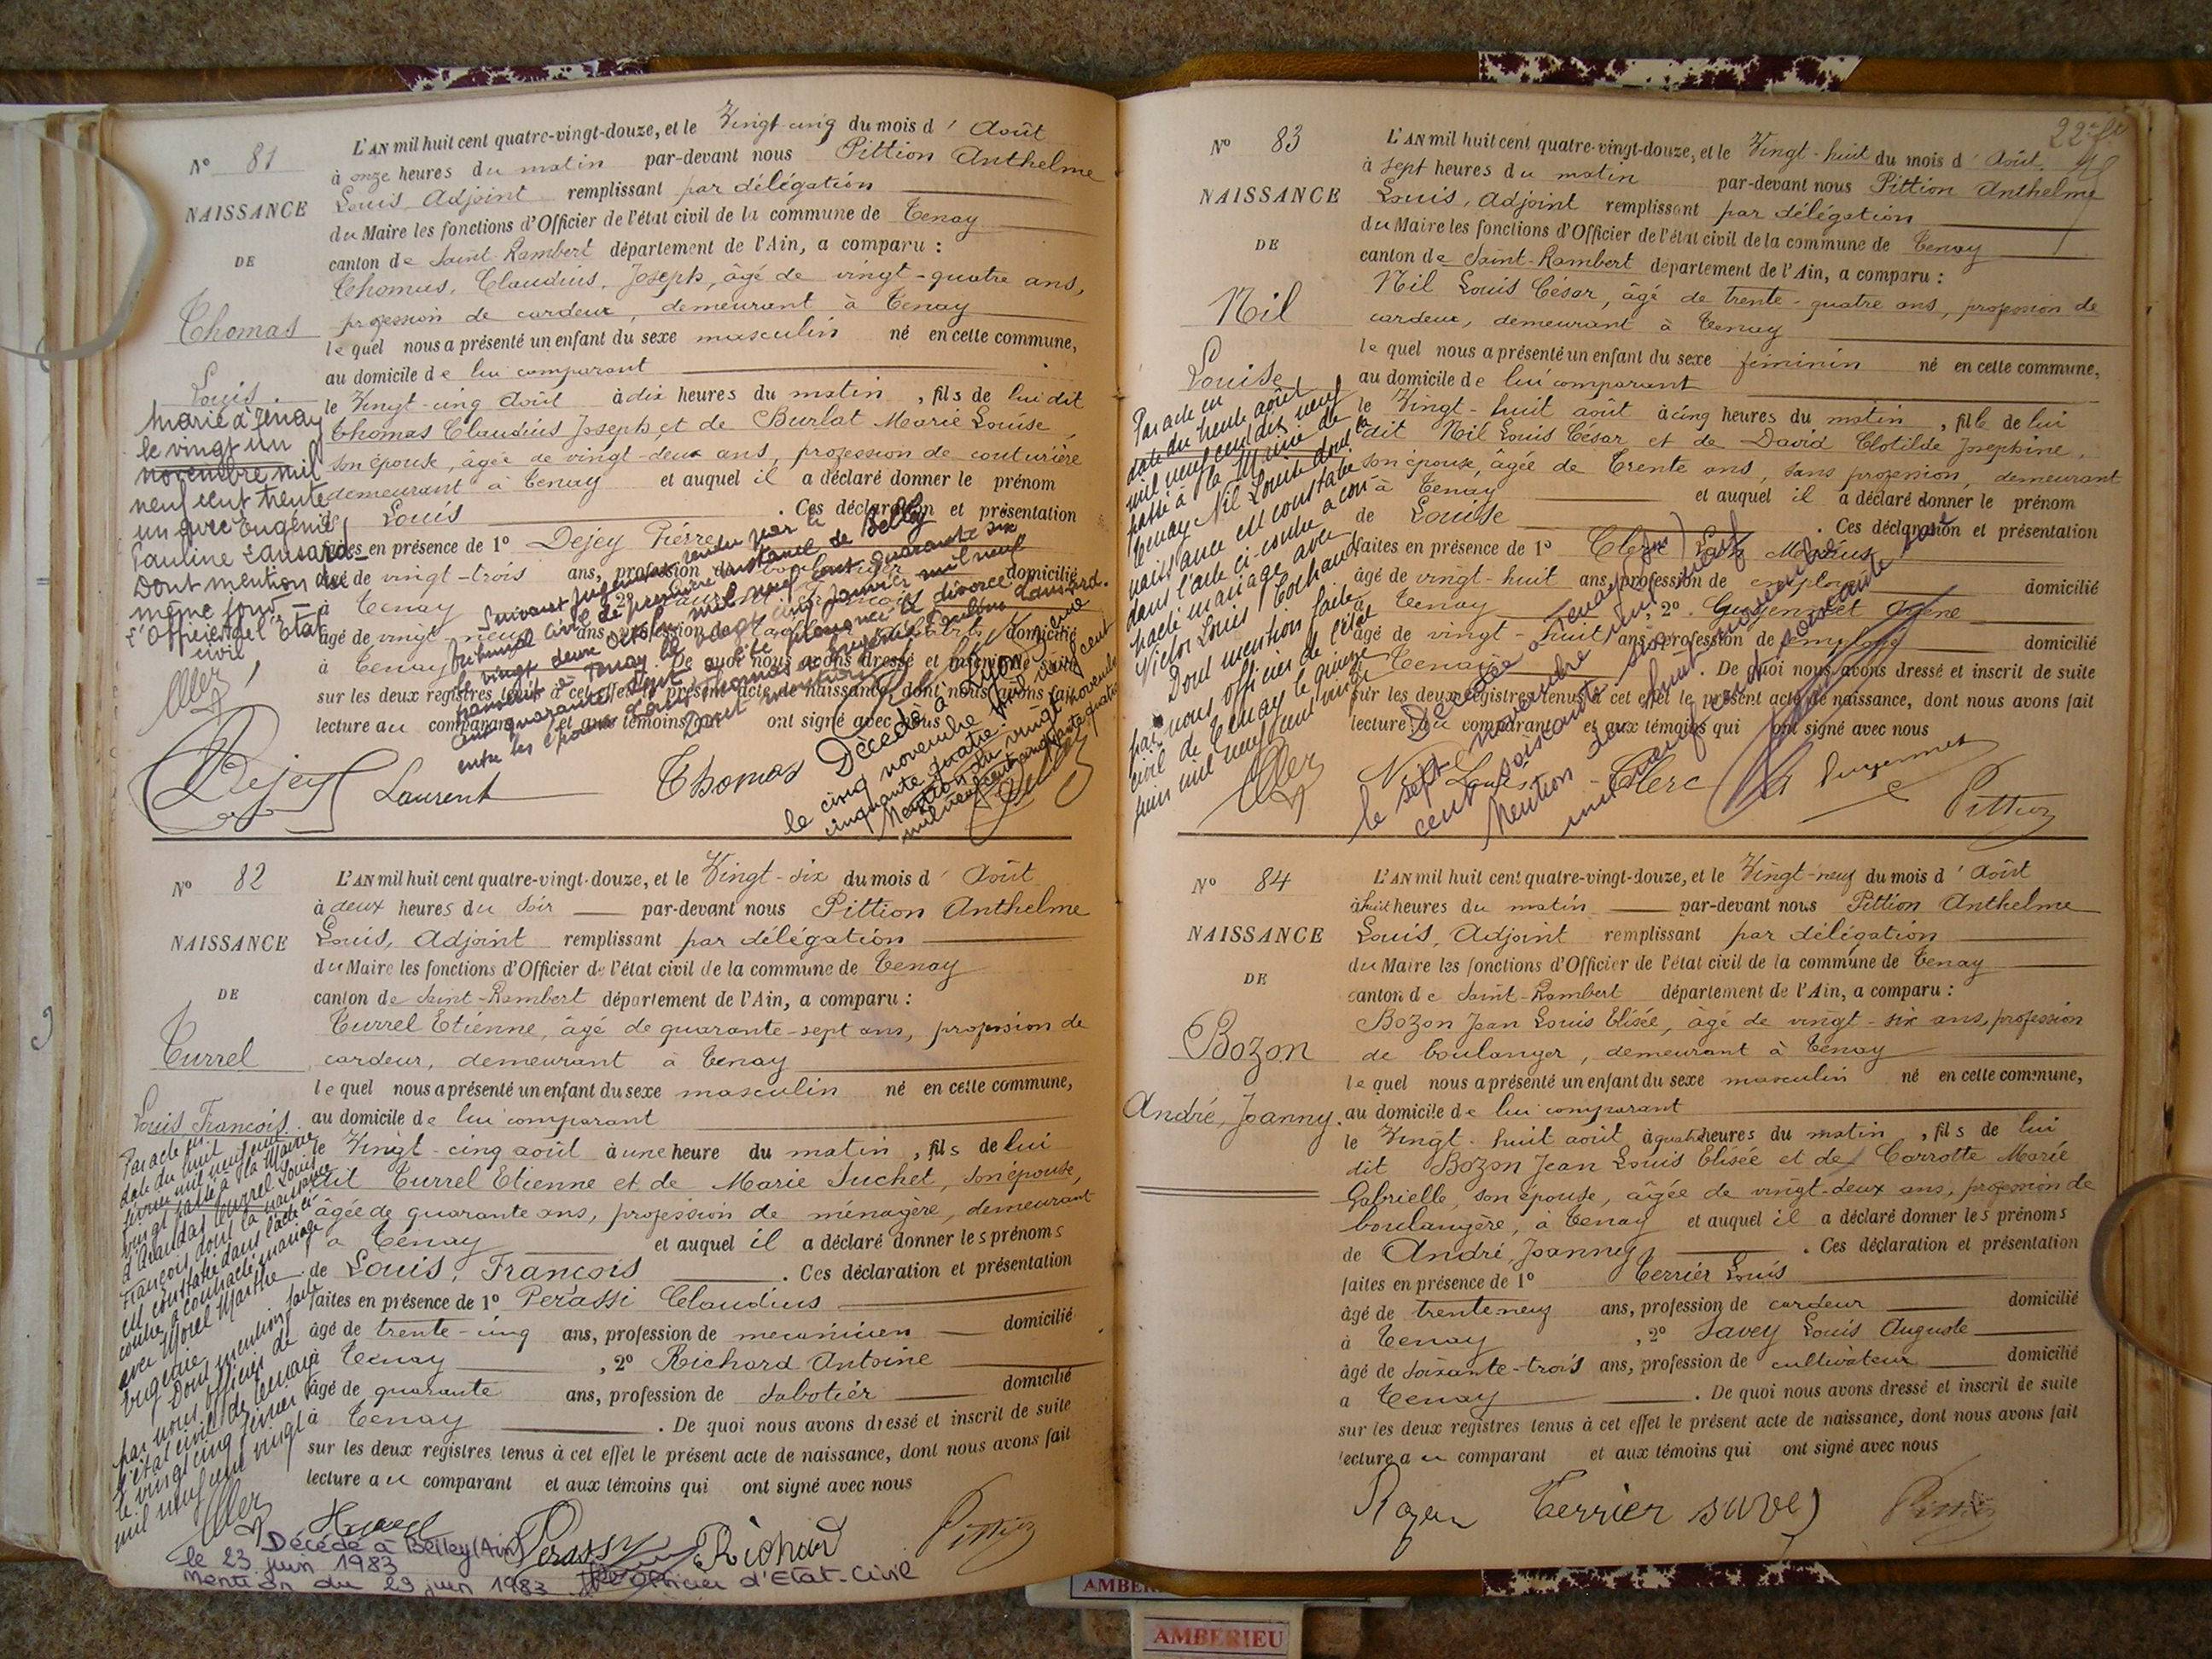 N° 81
NAISSANCE
DE
Thomas
Louis.
L'AN mil huit cent quatre-vingt-douze, et le Vingt-cinq du mois d' Août
à onze heures du matin par-devant nous Pittion Anthelme
Louis, Adjoint remplissant par délégation
du Maire les fonctions d'Officier de l'état civil de la commune de Tenay
canton de Saint-Rambert département de l'Ain, a comparu :
Thomas, Claudius, Joseph, âgé de vingt-quatre ans,
profession de cardeur, demeurant à Tenay
lequel nous a présenté un enfant du sexe masculin né en cette commune,
au domicile de lui comparant
le Vingt-cinq Août à dix heures du matin, fils de lui dit
Thomas Claudius Joseph, et de Burlat Marie Louise,
son épouse, âgée de vingt-deux ans, profession de couturière
demeurant à Tenay et auquel il a déclaré donner le prénom
de Louis . Ces déclaration et présentation
faites en présence de 1° Dejey Pierre
âgé de vingt-trois ans, profession de domicilié
à Tenay , 2° Laurent François
âgé de vingt-neuf ans, profession de domicilié
à Tenay . De quoi nous avons dressé et inscrit de suite
sur les deux registres tenus à cet effet le présent acte de naissance, dont nous avons fait
lecture au comparant et aux témoins qui ont signé avec nous
Marié à Tenay
le vingt un
novembre mil
neuf cent trente
un avec Eugénie
Pauline Lansard
Dont mention le
même jour
L'Officier de l'Etat
civil
Suivant jugement rendu par le
tribunal civil de première instance de Belley
le vingt deux octobre mil neuf cent quarante six
transcrit à Tenay le vingt cinq janvier mil neuf
cent quarante sept a été prononcé le divorce
entre les époux Louis Thomas et Eugénie Pauline Lansard.
Dont mention
Décédé à Lyon
le cinq novembre mil neuf cent
cinquante quatre
Mention du vingt novembre
mil neuf cent cinquante quatre
Dejey Laurent Thomas
N° 82
NAISSANCE
DE
Turrel
Louis François.
L'AN mil huit cent quatre-vingt-douze, et le Vingt-six du mois d' Août
à deux heures du soir par-devant nous Pittion Anthelme
Louis, Adjoint remplissant par délégation
du Maire les fonctions d'Officier de l'état civil de la commune de Tenay
canton de Saint-Rambert département de l'Ain, a comparu :
Turrel Etienne, âgé de quarante-sept ans, profession de
cardeur, demeurant à Tenay
lequel nous a présenté un enfant du sexe masculin né en cette commune,
au domicile de lui comparant
le Vingt-cinq août à une heure du matin, fils de lui
dit Turrel Etienne et de Marie Suchet, son épouse,
âgée de quarante ans, profession de ménagère, demeurant
à Tenay et auquel il a déclaré donner les prénoms
de Louis, François . Ces déclaration et présentation
faites en présence de 1° Perassi Claudius
âgé de trente-cinq ans, profession de mecanicien domicilié
à Tenay , 2° Richard Antoine
âgé de quarante ans, profession de sabotier domicilié
à Tenay . De quoi nous avons dressé et inscrit de suite
sur les deux registres tenus à cet effet le présent acte de naissance, dont nous avons fait
lecture au comparant et aux témoins qui ont signé avec nous
Par acte en
date du huit
février mil neuf cent
vingt passé à la Mairie
d'Arandas Turrel Louis
François dont la naissance
est constatée dans l'acte ci
contre a contracté mariage
avec Morel Marthe
Eugénie
Dont mention faite
par nous officier de
l'état civil de Tenay
le vingt cinq février
mil neuf cent vingt
Perassy Richard Pittion
Décédé à Belley (Ain)
le 23 juin 1983
Mention du 29 juin 1983 L'Officier d'Etat-Civil
22e ft
N° 83
NAISSANCE
DE
Nil
Louise
L'AN mil huit cent quatre-vingt-douze, et le Vingt-huit du mois d' Août
à sept heures du matin par-devant nous Pittion Anthelme
Louis, Adjoint remplissant par délégation
du Maire les fonctions d'Officier de l'état civil de la commune de Tenay
canton de Saint-Rambert département de l'Ain, a comparu :
Nil Louis César, âgé de trente-quatre ans, profession de
cardeur, demeurant à Tenay
lequel nous a présenté un enfant du sexe féminin né en cette commune,
au domicile de lui comparant
le Vingt-huit août à cinq heures du matin, fille de lui
dit Nil Louis César et de David Clotilde Josephine,
son épouse, âgée de trente ans, sans profession, demeurant
à Tenay et auquel il a déclaré donner le prénom
de Louise . Ces déclaration et présentation
faites en présence de 1° Clerc
âgé de vingt-huit ans, profession de employé domicilié
à Tenay , 2°
âgé de vingt-huit ans, profession de employé domicilié
à Tenay . De quoi nous avons dressé et inscrit de suite
sur les deux registres tenus à cet effet le présent acte de naissance, dont nous avons fait
lecture au comparant et aux témoins qui ont signé avec nous
Par acte en
date du trente août
mil neuf cent dix neuf
passé à la Mairie de
Tenay Nil Louise dont la
naissance est constatée
dans l'acte ci-contre a con-
tracté mariage avec
Victor Louis Cochand
Dont mention faite
par nous officier de l'état
civil de Tenay le quinze
juin mil neuf cent vingt
Décédée à Tenay (Ain)
le sept novembre mil neuf
cent soixante-six
Mention du huit novembre
mil neuf cent soixante six
Nil Louis Clerc Pittion
N° 84
NAISSANCE
DE
Bozon
André, Joanny.
L'AN mil huit cent quatre-vingt-douze, et le Vingt-neuf du mois d' Août
à huit heures du matin par-devant nous Pittion Anthelme
Louis, Adjoint remplissant par délégation
du Maire les fonctions d'Officier de l'état civil de la commune de Tenay
canton de Saint-Rambert département de l'Ain, a comparu :
Bozon Jean Louis Elisée, âgé de vingt-six ans, profession
de boulanger, demeurant à Tenay
lequel nous a présenté un enfant du sexe masculin né en cette commune,
au domicile de lui comparant
le Vingt-huit août à quatre heures du matin, fils de lui
dit Bozon Jean Louis Elisée et de Carrotte Marie
Gabrielle, son épouse, âgée de vingt-deux ans, profession de
boulangère, à Tenay et auquel il a déclaré donner les prénoms
de André, Joanny, . Ces déclaration et présentation
faites en présence de 1° Terrier Louis
âgé de trente neuf ans, profession de cardeur domicilié
à Tenay , 2° Savey Louis Auguste
âgé de soixante-trois ans, profession de cultivateur domicilié
à Tenay . De quoi nous avons dressé et inscrit de suite
sur les deux registres tenus à cet effet le présent acte de naissance, dont nous avons fait
lecture au comparant et aux témoins qui ont signé avec nous
Terrier Savey Pittion
AMBERIEU